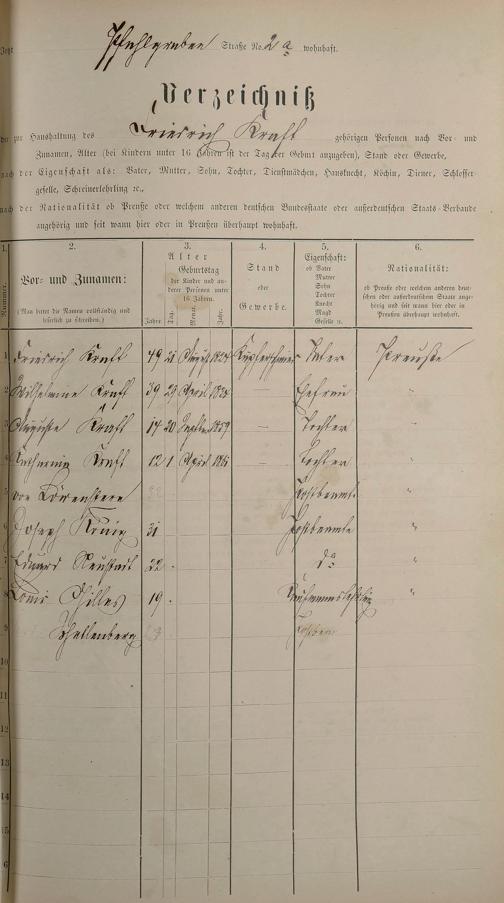 Jetzt Pfuhlgraben Straße No. 2 a wohnhaft.
Verzeichniß
der zur Haushaltung des Friedrich Kraft gehörigen Personen nach Vor- und
Zunamen, Alter (bei Kindern unter 16 Jahren ist der Tag der Geburt anzugeben), Stand oder Gewerbe,
nach der Eigenschaft als: Vater, Mutter, Sohn, Tochter, Dienstmädchen, Hausknecht, Köchin, Diener, Schlosser-
geselle, Schreinerlehrling ꝛc.,
nach der Nationalität ob Preuße oder welchem anderen deutschen Bundesstaate oder außerdeutschen Staats-Verbande
angehörig und seit wann hier oder in Preußen überhaupt wohnhaft.
1. 2. 3. 4. 5. 6.
Nummer.
Vor- und Zunamen:
(Man bittet die Namen vollständig und
leserlich zu schreiben.)
Alter
Geburtstag
der Kinder und an-
derer Personen unter
16 Jahren.
Jahre Tag. Monat. Jahr.
Stand
oder
Gewerbe.
Eigenschaft:
ob Vater
Mutter
Sohn
Tochter
Knecht
Magd
Geselle ꝛc.
Nationalität:
ob Preuße oder welchem andern deut-
schen oder außerdeutschem Staate ange-
hörig und seit wann hier oder in
Preußen überhaupt wohnhaft.
1 Friedrich Kraft 49 21 August 1824 Kupferschmied Vater Preuße
2 Wilhelmine Kraft 39 29 April 1834 — Ehefrau "
3 Auguste Kraft 14 20 Septbr 1859 — Tochter "
4 Katharina Kraft 12 1 April 1861 — Tochter "
5 von Postbeamte "
6 Joseph König 31 Postbeamte "
7 Eduard Neustadt 22 do "
8 Louis Hilles 19 Kaufmannslehrling "
9 Schellenberg
10
11
12
13
14
15
6